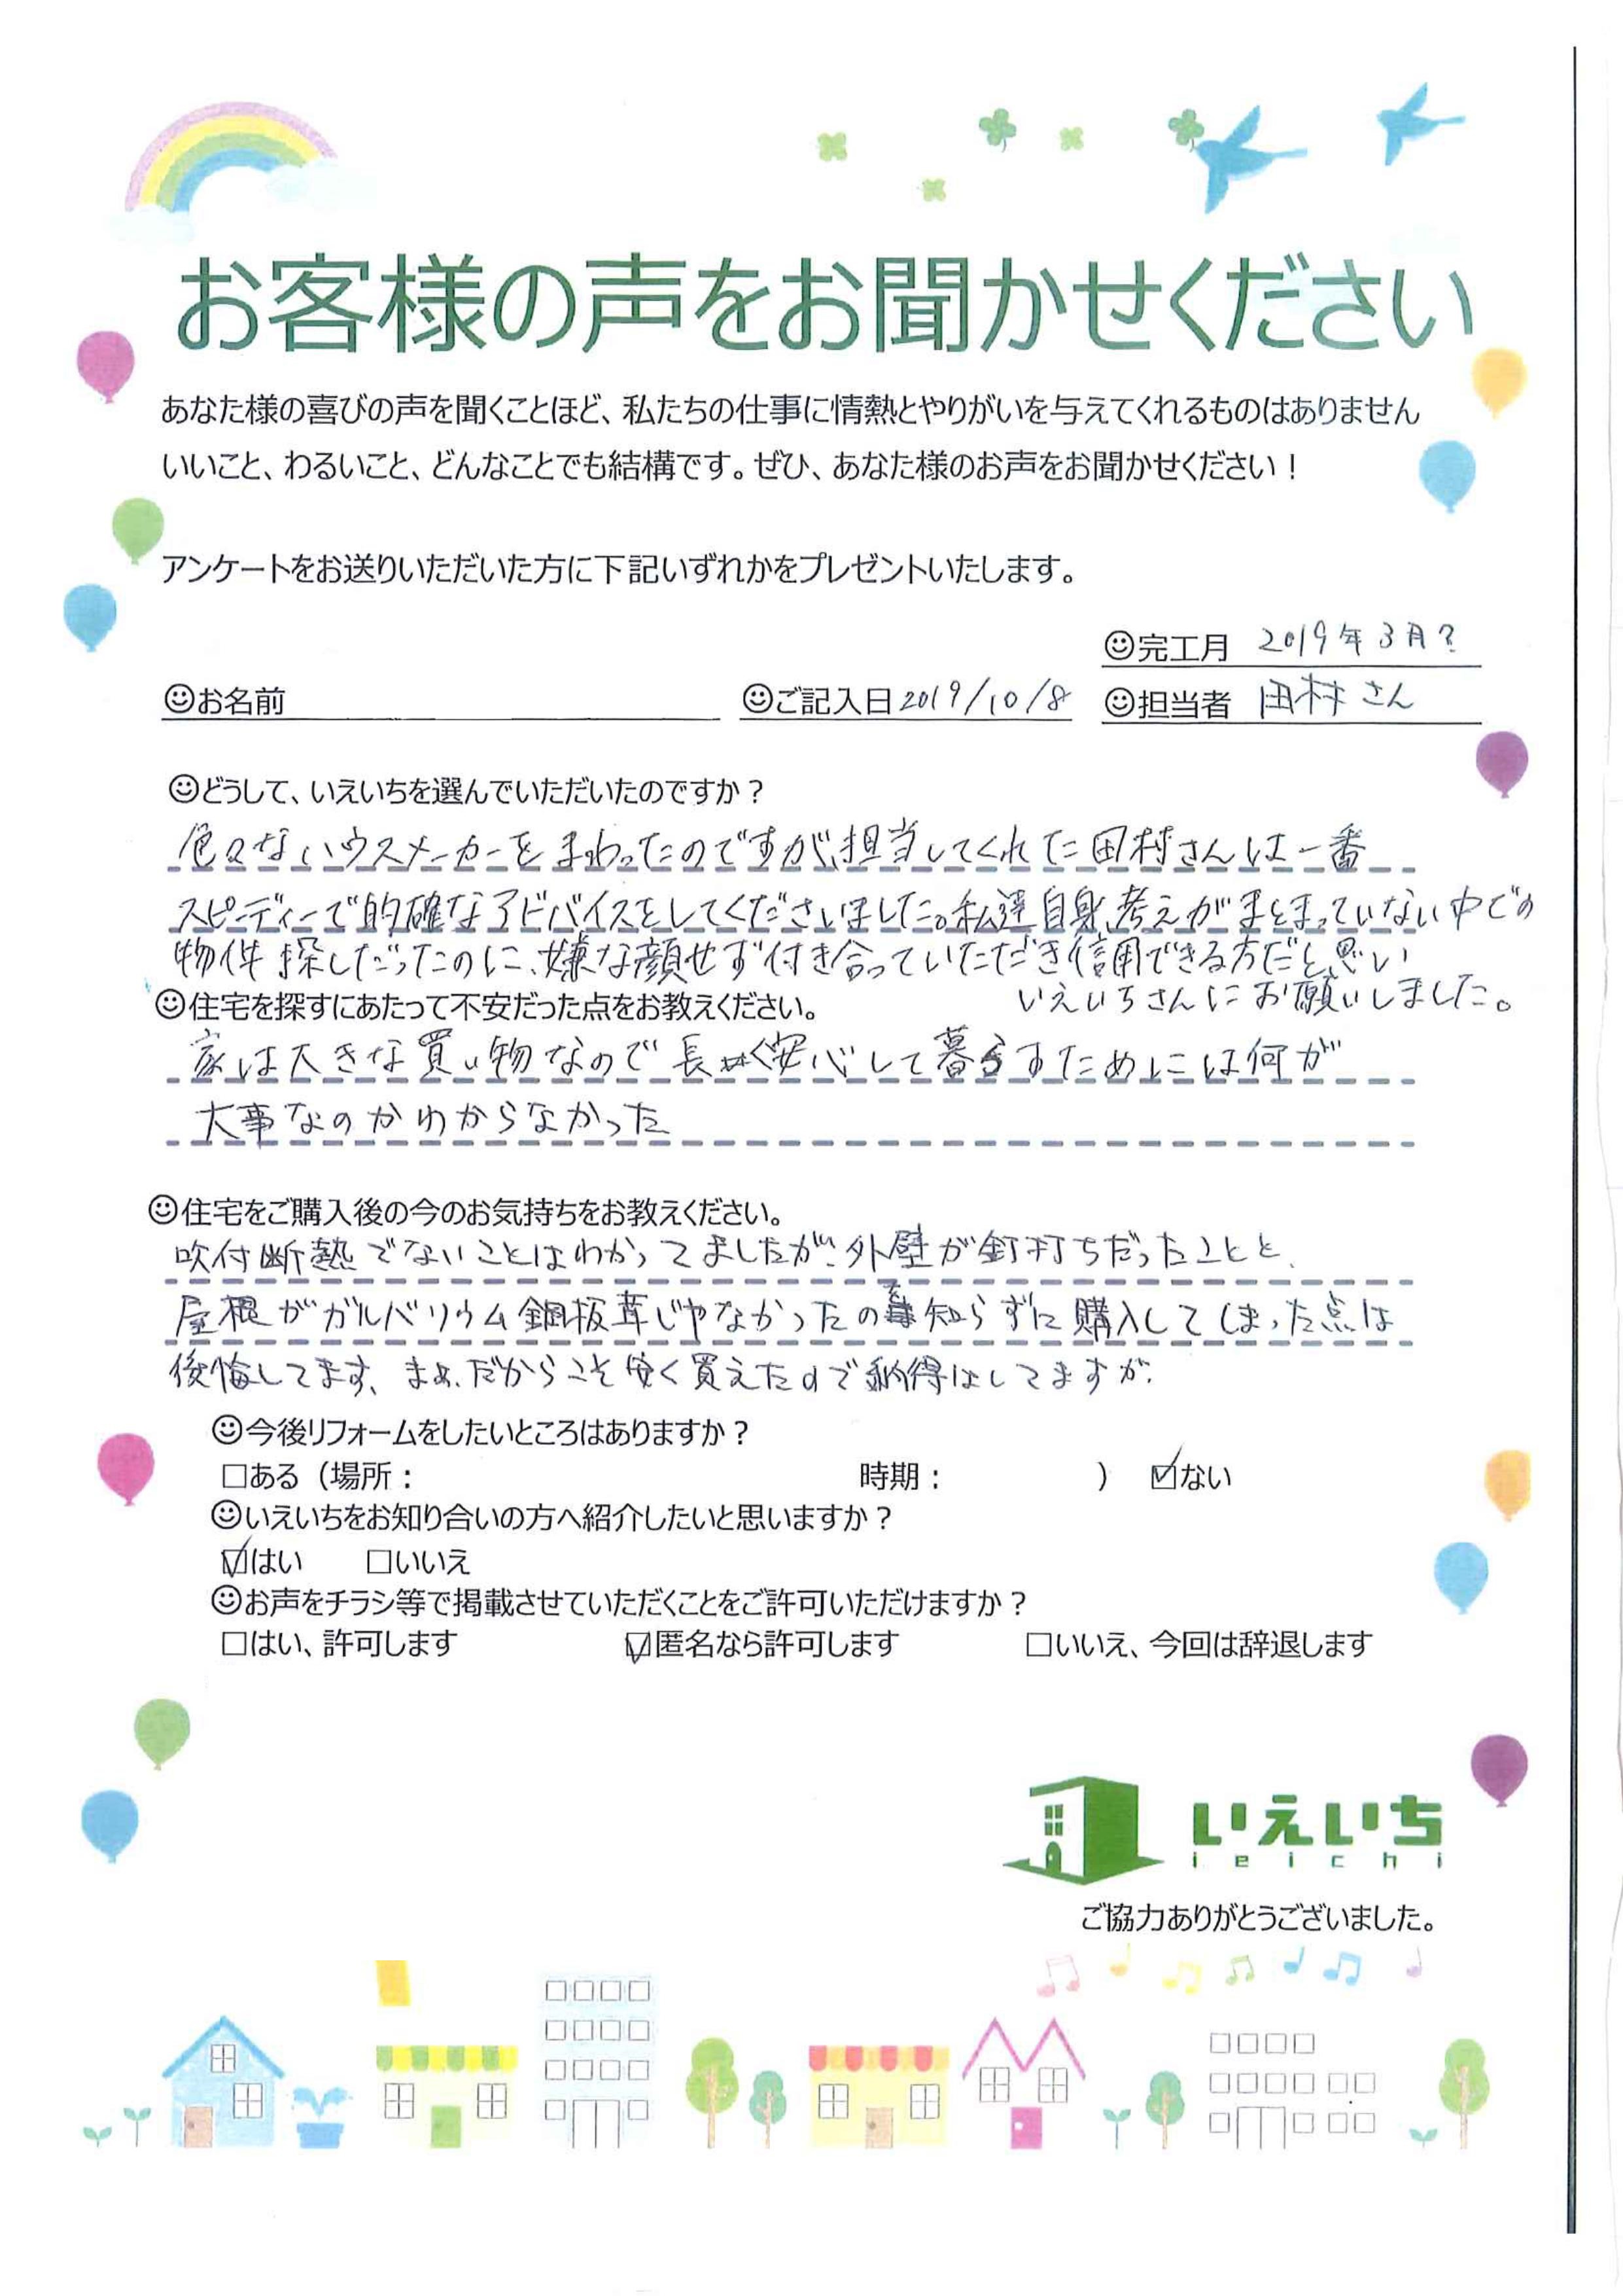 お客様の声をお聞かせください
あなた様の喜びの声を聞くことほど、私たちの仕事に情熱とやりがいを与えてくれるものはありません
いいこと、わるいこと、どんなことでも結構です。ぜひ、あなた様のお声をお聞かせください！
アンケートをお送りいただいた方に下記いずれかをプレゼントいたします。
完工月 2019年3月?
お名前 ご記入日 2019/10/8 担当者 田村さん
どうして、いえいちを選んでいただいたのですか？
色々なハウスメーカーをまわったのですが、担当してくれた田村さんは一番
スピーディーで的確なアドバイスをしてくださいました。私達自身、考えがまとまっていない中での
物件探しだったのに、嫌な顔せず付き合っていただき信用できる方だと思い
いえいちさんにお願いしました。
住宅を探すにあたって不安だった点をお教えください。
家は大きな買い物なので長く安心して暮らすためには何が
大事なのかわからなかった
住宅をご購入後の今のお気持ちをお教えください。
吹付断熱でないことはわかってましたが、外壁が釘打ちだったことと、
屋根がガルバリウム鋼板葺じゃなかったのを知らずに購入してしまった点は
後悔してます、まぁ、だからこそ安く買えたので納得はしてますが、
今後リフォームをしたいところはありますか？
□ある（場所： 時期： ） ☑ない
いえいちをお知り合いの方へ紹介したいと思いますか？
☑はい □いいえ
お声をチラシ等で掲載させていただくことをご許可いただけますか？
□はい、許可します ☑匿名なら許可します □いいえ、今回は辞退します
いえいち
ieichi
ご協力ありがとうございました。